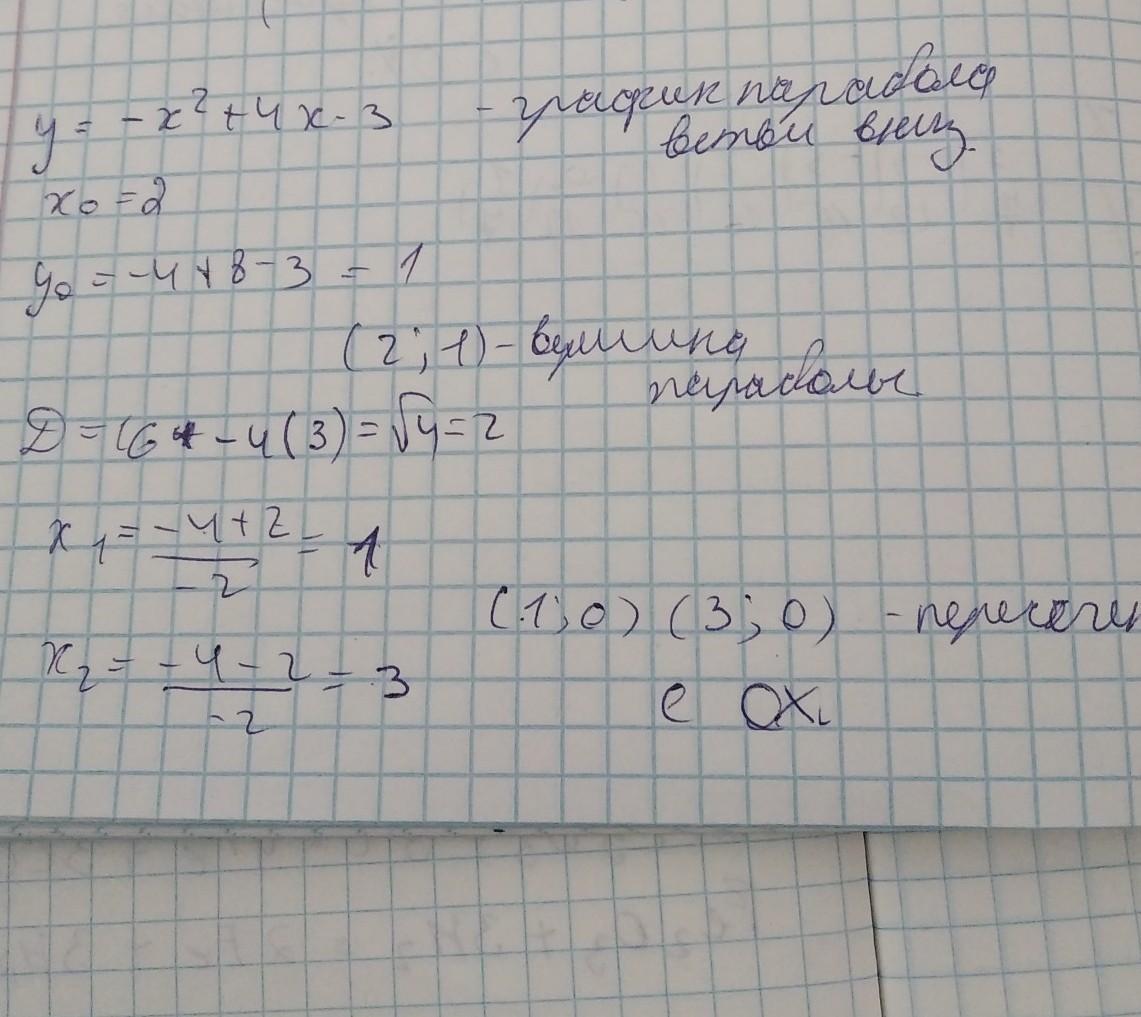 y = -x² + 4x - 3 - график парабола
ветви вниз.
x₀ = 2
y₀ = -4 + 8 - 3 = 1
(2; 1) - вершина
параболы
D = 16 - 4(3) = √4 = 2
x₁ = (-4+2)/(-2) = 1
(1; 0) (3; 0) - пересечен
x₂ = (-4-2)/(-2) = 3
с OX.